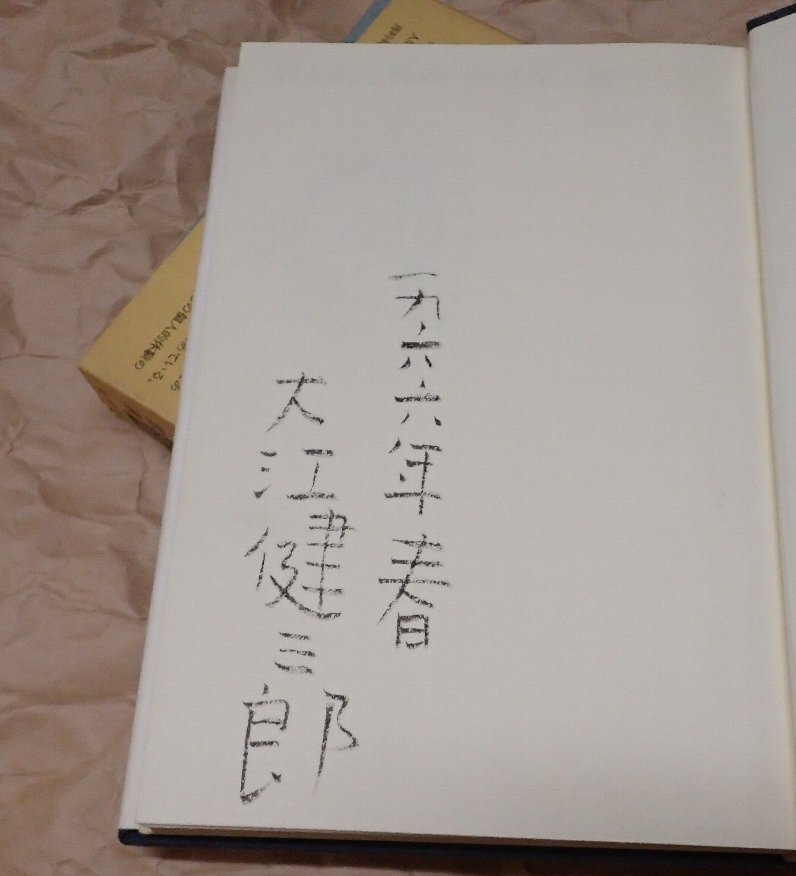 一九六六年春
大江健三郎